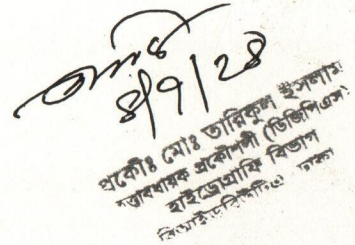 ৪/৭/২৪
প্রকৌঃ মোঃ তারিকুল ইসলাম
তত্ত্বাবধায়ক প্রকৌশলী (ডিজিপিএস)
হাইড্রোগ্রাফি বিভাগ
বিআইডব্লিউটিএ ঢাকা